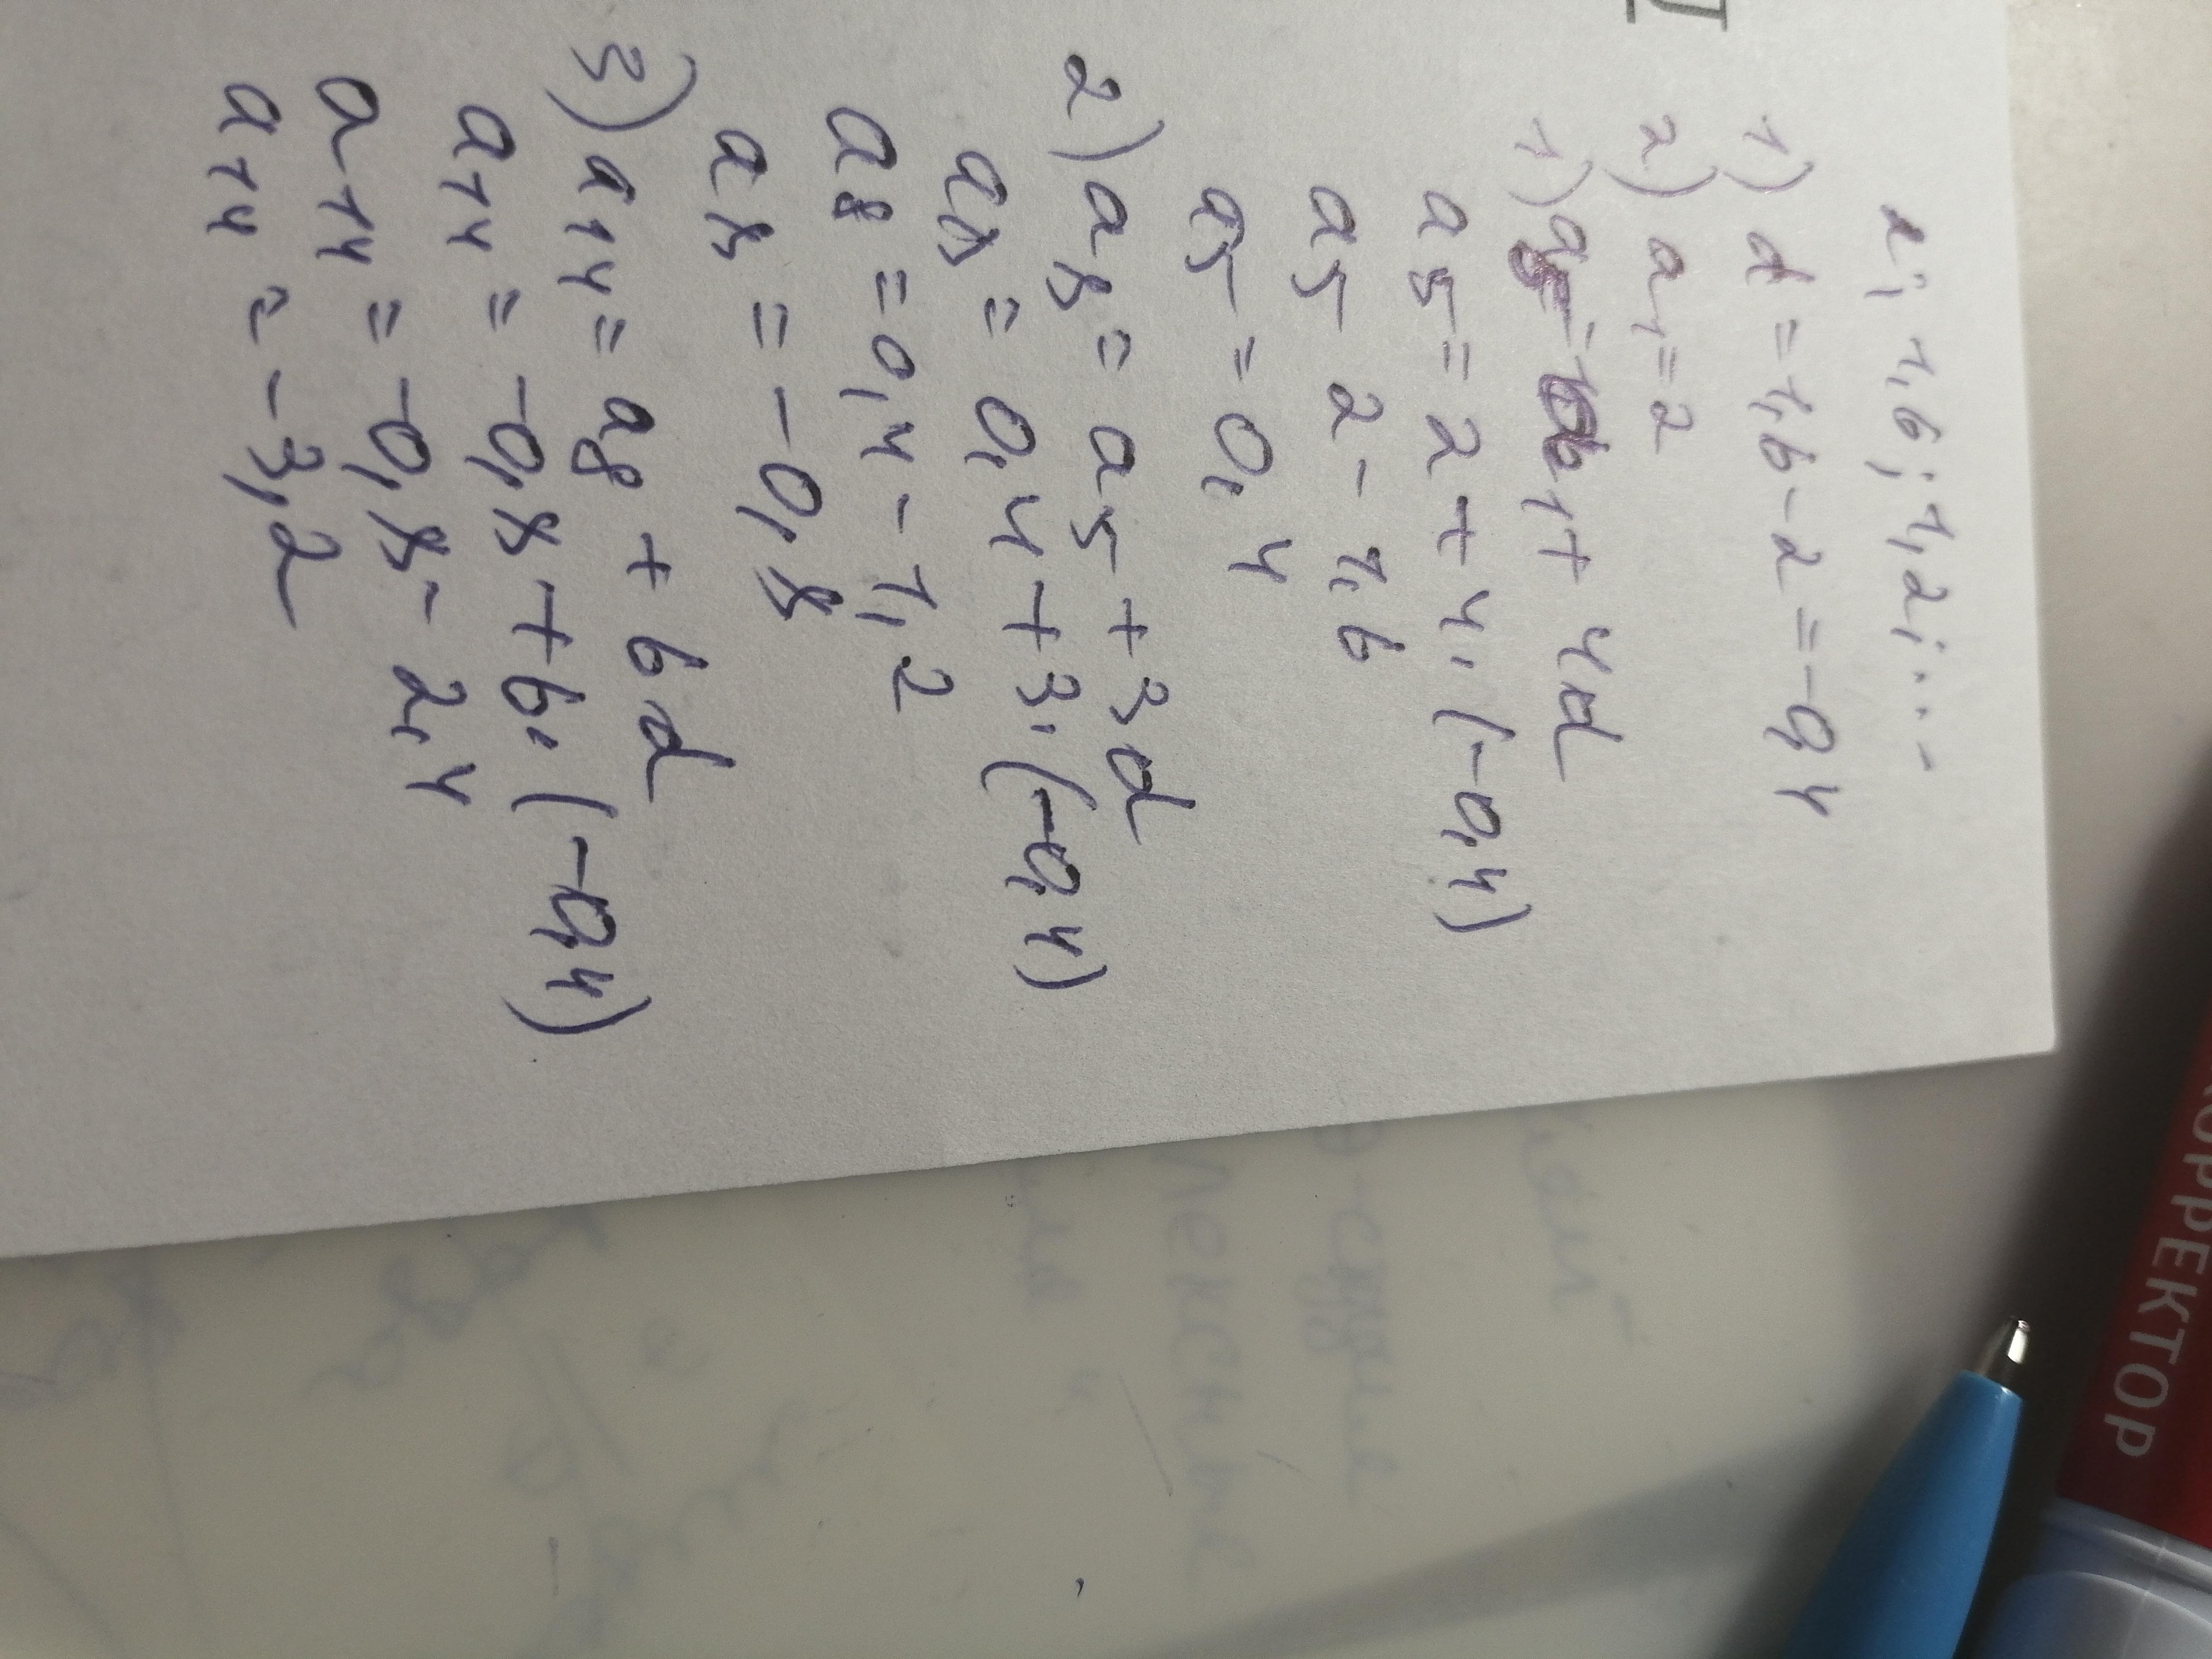 II
2; 1,6; 1,2; ...
1) d = 1,6 - 2 = -0,4
2) a1 = 2
1) a5 = a1 + 4d
a5 = 2 + 4·(-0,4)
a5 2 - 1,6
a5 = 0,4
2) a8 = a5 + 3d
a8 = 0,4 + 3·(-0,4)
a8 = 0,4 - 1,2
a8 = -0,8
3) a14 = a8 + 6d
a14 = -0,8 + 6·(-0,4)
a14 = -0,8 - 2,4
a14 = -3,2
КОРРЕКТОР